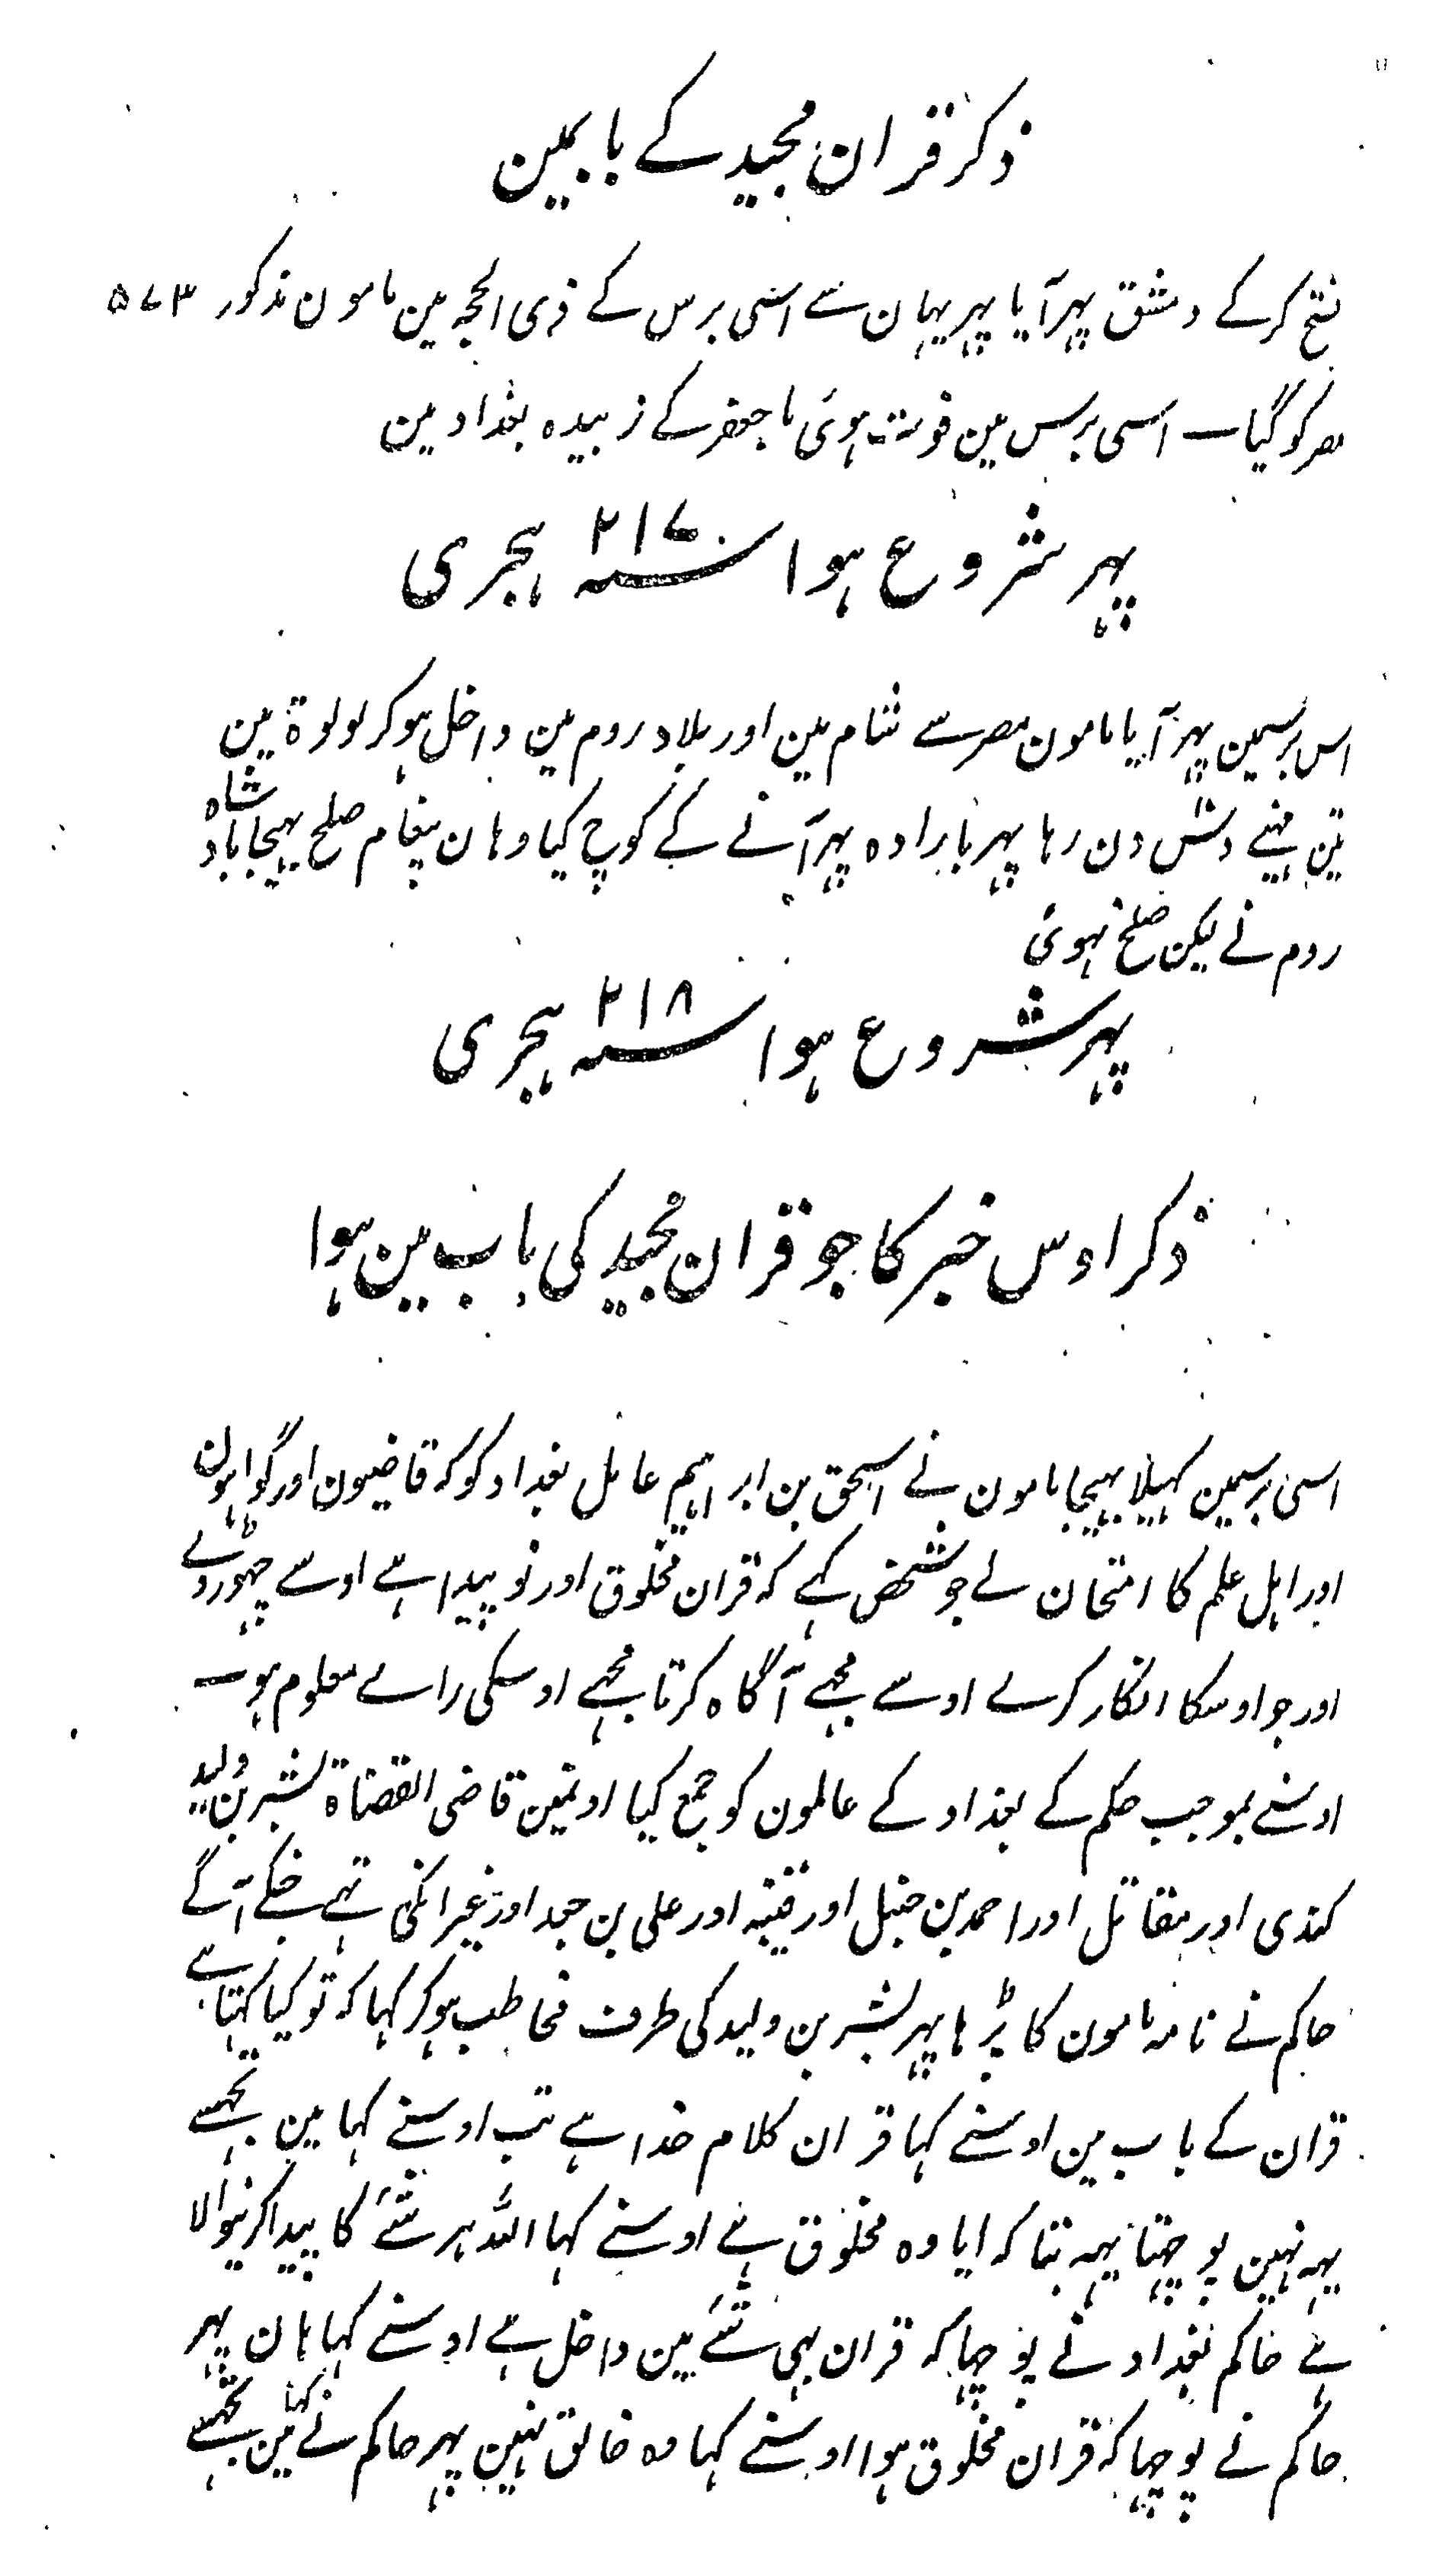 ذکر قران مجید کے بابمین
فتح کرکے دمشق پہر آیا پہر یہان سے اسی برس کے ذی الحجہ مین مامون مذکور ۵۷۳
مصر کو گیا اسی برس مین فوت ہوئی ما جعفر کے زبیدہ بغداد مین
پہر شروع ہوا سنہ ۲۱۷ ہجری
اس برسمین پہر آیا مامون مصر سے شام مین اور بلاد روم مین داخل ہوکر لولوۃ مین
تین مہنے دس دن رہا پہر بارادہ پہر آنے کے کوچ کیا وہان پیغام صلح بہیجا بادشاہ
روم نے لیکن صلح نہوئی
پہر شروع ہوا سنہ ۲۱۸ ہجری
ذکر اوس خبر کا جو قران مجید کی باب مین ہوا
اسی برسمین کہلا بہیجا مامون نے اسحق بن ابراہیم عامل بغداد کو کہ قاضیون اور گواہون
اور اہل علم کا امتحان لے جو شخص کہے کہ قران مخلوق اور نو پیدا ہے اوسے چہوڑدے
اور جو اوسکا انکار کرے اوسے مجہے آگاہ کر تا مجہے اوسکی راے معلوم ہو
اوسنے بموجب حکم کے بغداد کے عالمون کو جمع کیا اونمین قاضی القضاۃ بشر بن ولید
کندی اور مقاتل اور احمد بن حنبل اور قتیبہ اور علی بن جعد اور غیر انکی تہے جنکے آگے
حاکم نے نامہ مامون کا پڑہا پہر بشر بن ولید کی طرف مخاطب ہوکر کہا کہ تو کیا کہتا ہے
قران کے باب مین اوسنے کہا قران کلام خدا ہے تب اوسنے کہا مین تجہسے
یہہ نہین پوچہتا یہہ بتا کہ ایا وہ مخلوق ہے اوسنے کہا اللہ ہر شے کا پیدا کرنیوالا
ہے حاکم بغداد نے پوچہا کہ قران بہی شے مین داخل ہے اوسنے کہا ہان پہر
حاکم نے پوچہا کہ قران مخلوق ہوا اوسنے کہا وہ خالق نہین پہر حاکم نے کہا مین تجہسے